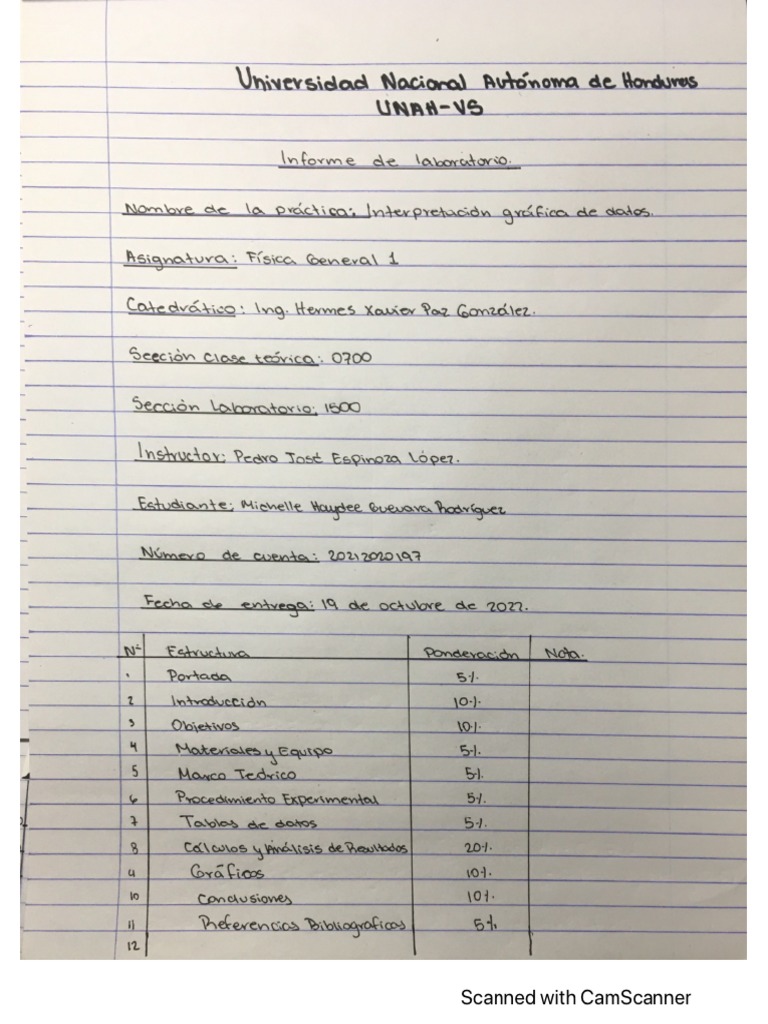 Universidad Nacional Autónoma de Honduras
UNAH-VS
Informe de laboratorio.
Nombre de la práctica: Interpretación gráfica de datos.
Asignatura: Física General 1
Catedrático: Ing. Hermes Xavier Paz González.
Sección clase teórica: 0700
Sección Laboratorio: 1500
Instructor: Pedro José Espinoza López.
Estudiante: Michelle Haydee Guevara Rodríguez
Número de cuenta: 20212020197
Fecha de entrega: 19 de octubre de 2022.
Nº Estructura Ponderación Nota.
1 Portada 5%
2 Introducción 10%
3 Objetivos 10%
4 Materiales y Equipo 5%
5 Marco Teórico 5%
6 Procedimiento Experimental 5%
7 Tablas de datos 5%
8 Cálculos y Análisis de Resultados 20%
Gráficos 10%
10 Conclusiones 10%
11 Referencias Bibliograficas 5%
12
Scanned with CamScanner